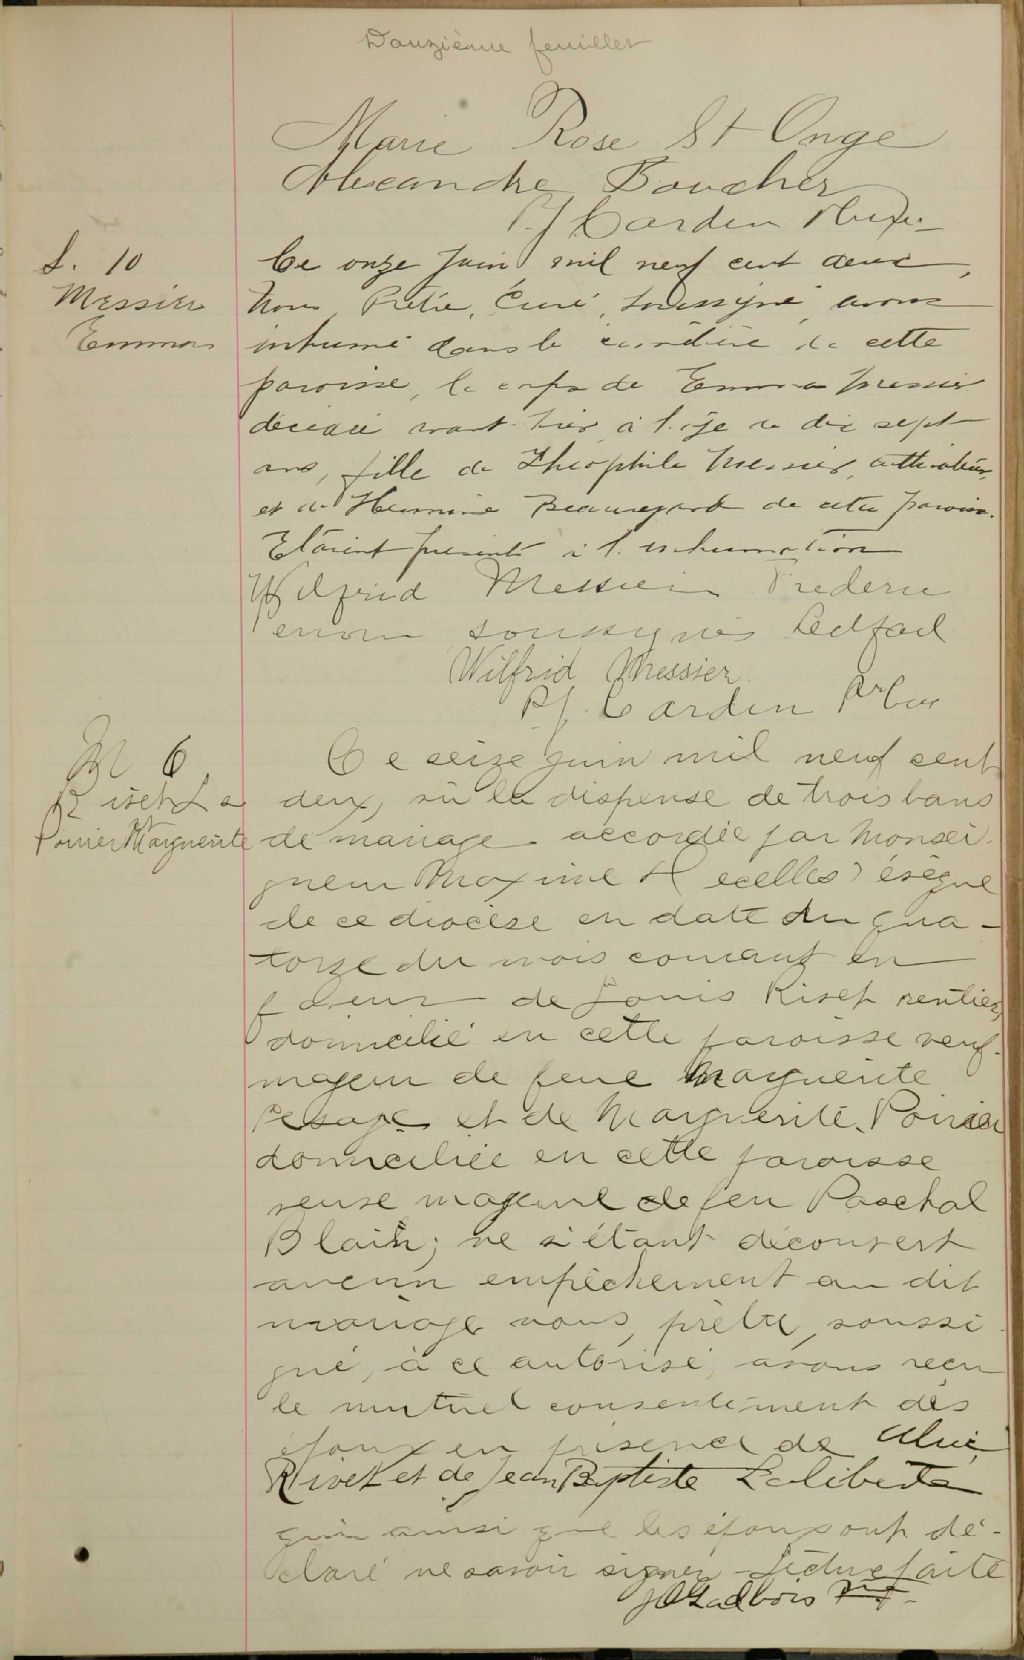 Douzième feuillet
Marie Rose St Onge
Alexandre Boucher
P J Cardin Ptre
S. 10
Messier
Emma
Ce onze Juin mil neuf cent deux,
Nous Prêtre, Curé, soussigné avons
inhumé dans le cimétière de cette
paroisse, le corps de Emma Messier
décédée avant hier à l'age de dix sept
ans, fille de Théophile Messier, cultivateur,
et de Hermine Beauregard de cette paroisse.
Etaient présents à l'inhumation
Wilfrid Messier Frederic
soussignés
Wilfrid Messier
P J. Cardin Ptre Cur
M 6
Riset Ls
Poirier Marguerite
Ce seize juin mil neuf cent
deux, vu la dispense de trois bans
de mariage accordée par Monsei
gneur Maxime Decelles évêque
de ce diocèse en date du qua-
torze du mois courant en
faveur de Louis Riset rentier,
domicilié en cette paroisse veuf
majeur de feue Marguerite
Lesage et de Marguerite Poirier
domiciliée en cette paroisse
veuve majeure de feu Paschal
Blain; ne s'étant découvert
aucun empêchement au dit
mariage nous, prêtre soussi
gné, à ce autorisé, avons reçu
le mutuel consentement des
époux en présence de
Rivet et de Jean Baptiste Laliberté
qui ainsi que les époux ont dé-
claré ne savoir signer Lecture faite
JO Gadbois Ptr